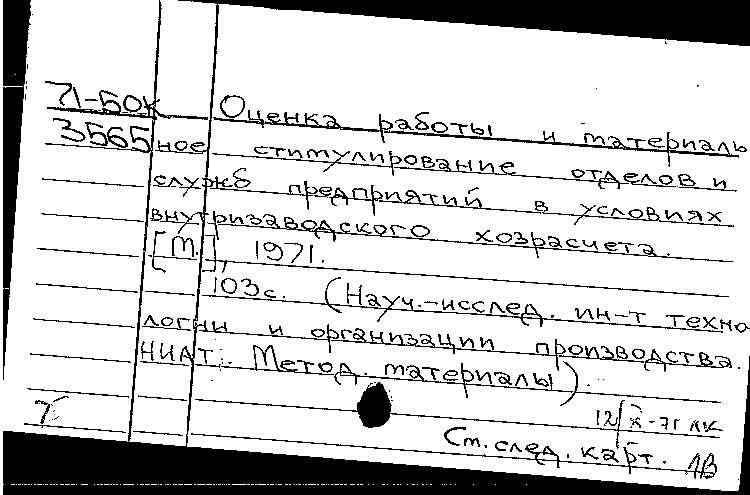 71-БОК Оценка работы и материаль
3565 ное стимулирование отделов и
служб предприятий в условиях
внутризаводского хозрасчета.
[М.], 1971.
103с. (Науч.-исслед. ин-т техно
логии и организации производства.
НИАТ. Метод. материалы).
12/X-71 ЛК
См. след. карт.